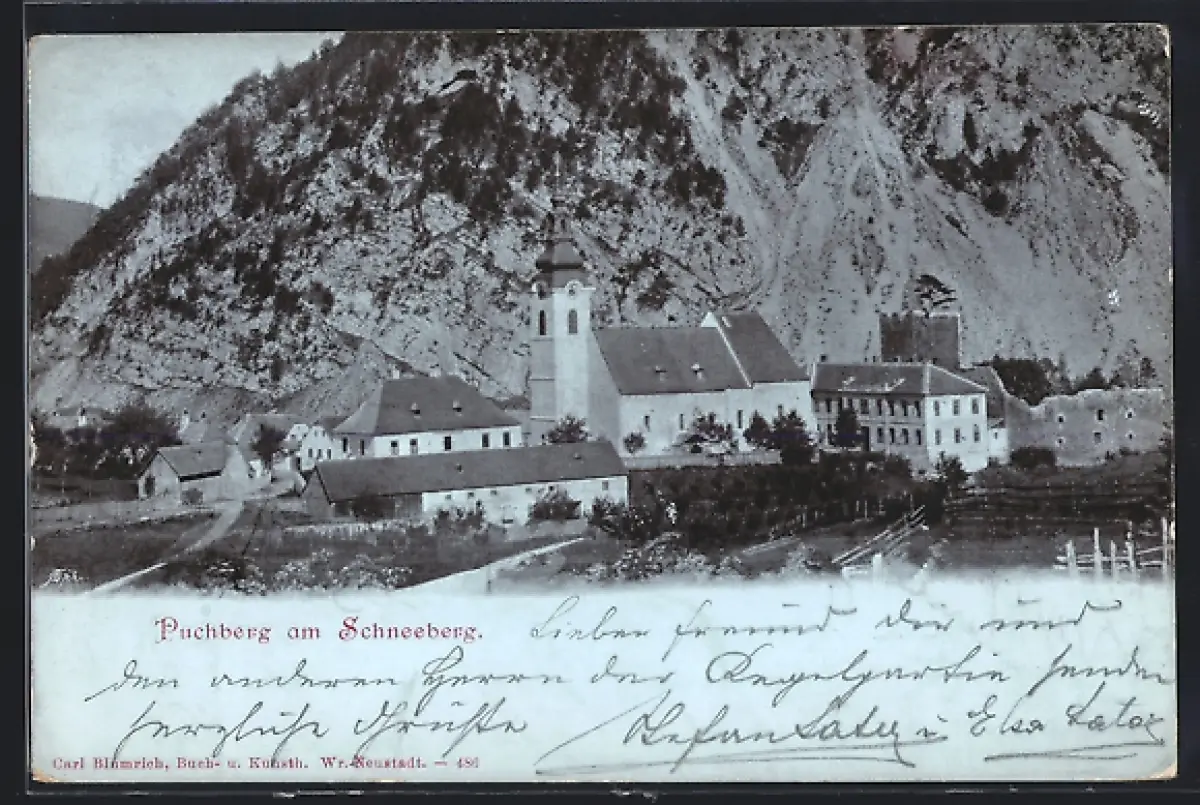 Puchberg am Schneeberg.
Lieber freund dir und
den anderen Herren der Kegelpartie senden
herzliche Grüße
Stefan Latey u Elsa Latey
Carl Blumrich, Buch- u. Kunsth. Wr.-Neustadt. — 481